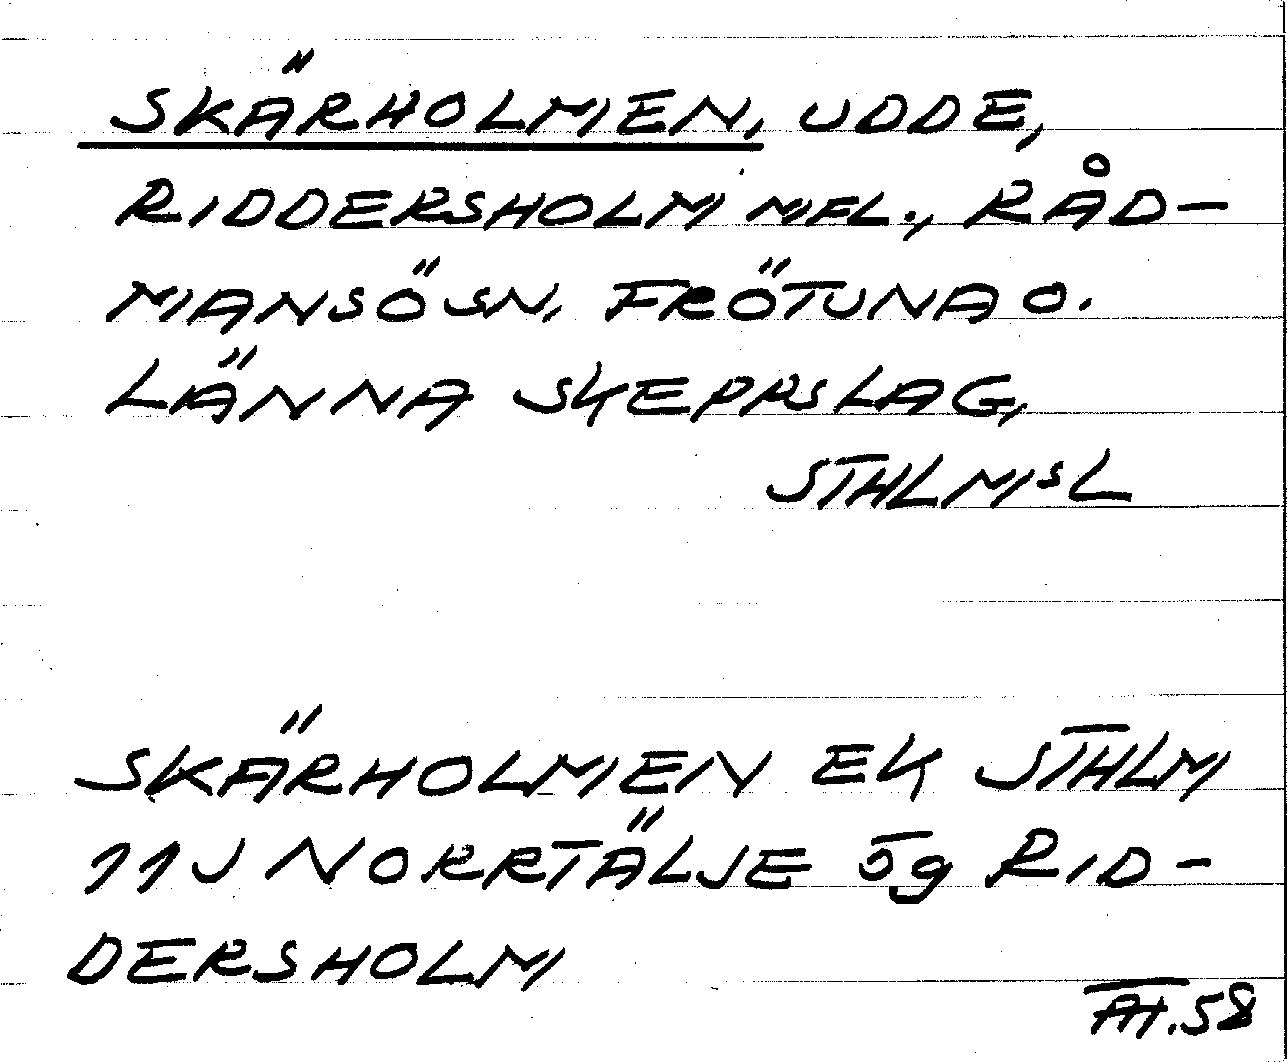 SKÄRHOLMEN, UDDE,
RIDDERSHOLM MFL., RÅD-
MANSÖ SN, FRÖTUNA O.
LÄNNA SKEPPSLAG,
STHLMSL
SKÄRHOLMEN EK STHLM
11J NORRTÄLJE 5g RID-
DERSHOLM
TH.58